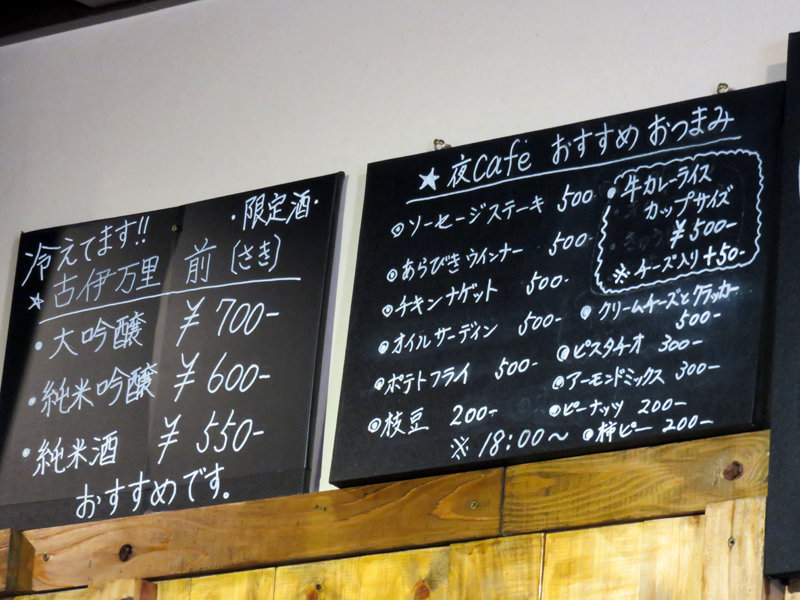 冷えてます!! ・限定酒・
★古伊万里 前(さき)
・大吟醸 ¥700-
・純米吟醸 ¥600-
・純米酒 ¥550-
おすすめです。
★夜cafe おすすめ おつまみ
ソーセージステーキ 500
あらびきウインナー 500-
チキンナゲット 500-
オイルサーディン 500-
ポテトフライ 500-
枝豆 200-
※18:00〜
牛カレーライス
カップサイズ
¥500-
※チーズ入り+50-
クリームチーズとクラッカー
500-
ピスタチオ 300-
アーモンドミックス 300-
ピーナッツ 200-
柿ピー 200-